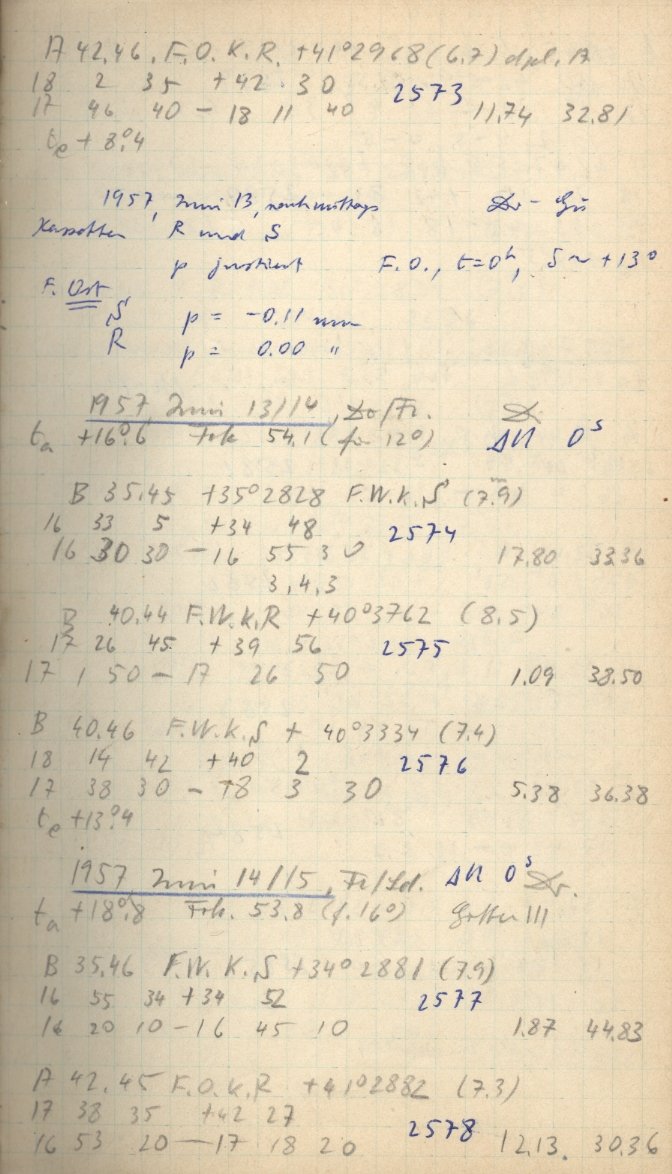 A 42.46. F.O. K.R. +41°2968 (6.7) dpl. A
18 2 35 +42 30 2573
17 46 40 — 18 11 40 11.74 32.81
te + 8°.4
1957, Juni 13, nachmittags Dr - Gü
Kassetten R und S
p justiert F.O., t=0h, δ ~ +13°
F. Ost
S p = -0.11 mm
R p = 0.00 "
1957 Juni 13/14, Do/Fr.
ta +16°.6 Fok 54.1 (für 12°) ΔU 0s
B 35.45 +35°2828 F.W.K.S (7.9)
16 33 5 +34 48 2574
16 30 30 — 16 55 30 17.80 33.36
3, 4, 3
B 40.44 F.W.K.R +40°3762 (8.5)
17 26 45 +39 56 2575
17 1 50 — 17 26 50 1.09 38.50
B 40.46 F.W.K.S + 40°3334 (7.4)
18 14 42 +40 2 2576
17 38 30 — 18 3 30 5.38 36.38
te +13°.4
1957 Juni 14/15, Fr/Sd. ΔU 0s Dr.
ta +18°.8 Fok. 53.8 (f. 16°) III
B 35.46 F.W. K.S +34°2881 (7.9)
16 55 34 +34 52 2577
16 20 10 — 16 45 10 1.87 44.83
A 42.45 F.O.K.R +41°2882 (7.3)
17 38 35 +42 27 2578
16 53 20 — 17 18 20 12.13. 30.36